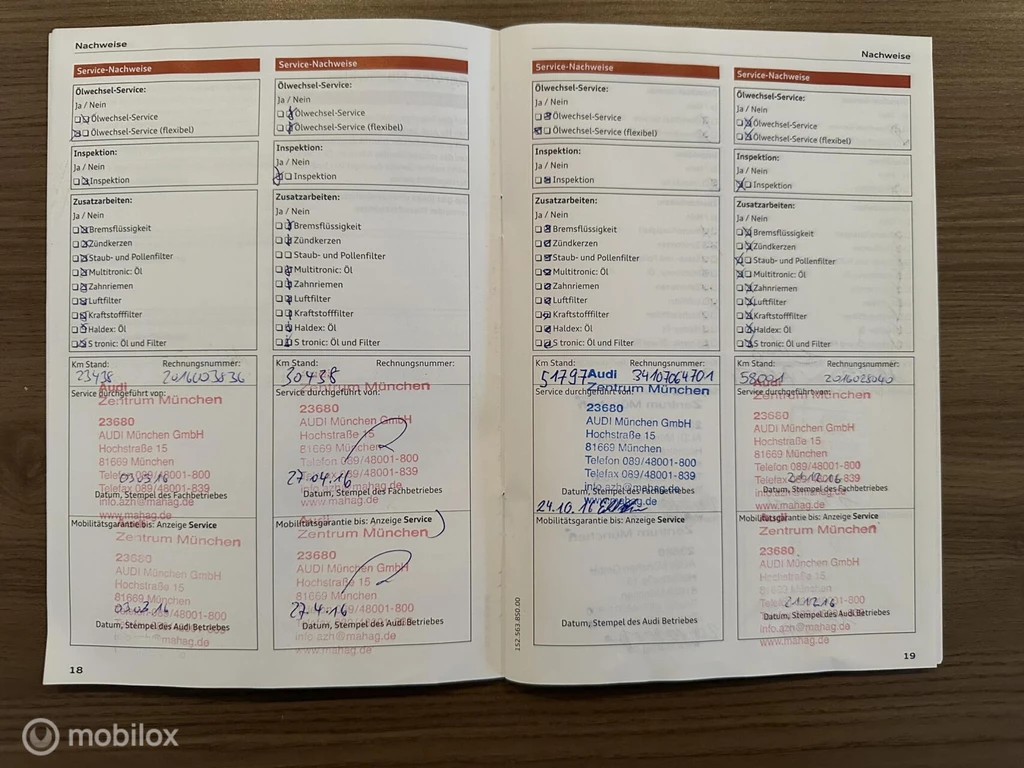 Nachweise
Service-Nachweise
Ölwechsel-Service:
Ja / Nein
Ölwechsel-Service
Ölwechsel-Service (flexibel)
Inspektion:
Ja / Nein
Inspektion
Zusatzarbeiten:
Ja / Nein
Bremsflüssigkeit
Zündkerzen
Staub- und Pollenfilter
Multitronic: Öl
Zahnriemen
Luftfilter
Kraftstofffilter
Haldex: Öl
S tronic: Öl und Filter
Km Stand: Rechnungsnummer:
23438 2016003836
Service durchgeführt von:
Audi
Zentrum München
23680
AUDI München GmbH
Hochstraße 15
81669 München
Telefon 089/48001-800
Telefax 089/48001-839
03.03.16
Datum, Stempel des Fachbetriebes
info.azh@mahag.de
www.mahag.de
Mobilitätsgarantie bis: Anzeige Service
Zentrum München
23680
AUDI München GmbH
Hochstraße 15
81669 München
03.03.16
Datum, Stempel des Audi Betriebes
info.azh@mahag.de
www.mahag.de
18
Service-Nachweise
Ölwechsel-Service:
Ja / Nein
Ölwechsel-Service
Ölwechsel-Service (flexibel)
Inspektion:
Ja / Nein
Inspektion
Zusatzarbeiten:
Ja / Nein
Bremsflüssigkeit
Zündkerzen
Staub- und Pollenfilter
Multitronic: Öl
Zahnriemen
Luftfilter
Kraftstofffilter
Haldex: Öl
S tronic: Öl und Filter
Km Stand: Rechnungsnummer:
30438
Zentrum München
Service durchgeführt von:
23680
AUDI München GmbH
Hochstraße 15
81669 München
Telefon 089/48001-800
Telefax 089/48001-839
27.04.16
Datum, Stempel des Fachbetriebes
www.mahag.de
Mobilitätsgarantie bis: Anzeige Service
Zentrum München
23680
AUDI München GmbH
Hochstraße 15
81669 München
27.4.16
Datum, Stempel des Audi Betriebes
info.azh@mahag.de
www.mahag.de
Nachweise
Service-Nachweise
Ölwechsel-Service:
Ja / Nein
Ölwechsel-Service
Ölwechsel-Service (flexibel)
Inspektion:
Ja / Nein
Inspektion
Zusatzarbeiten:
Ja / Nein
Bremsflüssigkeit
Zündkerzen
Staub- und Pollenfilter
Multitronic: Öl
Zahnriemen
Luftfilter
Kraftstofffilter
Haldex: Öl
S tronic: Öl und Filter
Km Stand: Rechnungsnummer:
51797 34107064701
Audi
Zentrum München
Service durchgeführt von:
23680
AUDI München GmbH
Hochstraße 15
81669 München
Telefon 089/48001-800
Telefax 089/48001-839
info.azh@mahag.de
Datum, Stempel des Fachbetriebes
www.mahag.de
24.10.16
Mobilitätsgarantie bis: Anzeige Service
Datum, Stempel des Audi Betriebes
152.563.850.00
Service-Nachweise
Ölwechsel-Service:
Ja / Nein
Ölwechsel-Service
Ölwechsel-Service (flexibel)
Inspektion:
Ja / Nein
Inspektion
Zusatzarbeiten:
Ja / Nein
Bremsflüssigkeit
Zündkerzen
Staub- und Pollenfilter
Multitronic: Öl
Zahnriemen
Luftfilter
Kraftstofffilter
Haldex: Öl
S tronic: Öl und Filter
Km Stand: Rechnungsnummer:
Audi
Zentrum München
Service durchgeführt von:
23680
AUDI München GmbH
Hochstraße 15
81669 München
Telefon 089/48001-800
Telefax 089/48001-839
21.12.16
Datum, Stempel des Fachbetriebes
info.azh@mahag.de
www.mahag.de
Mobilitätsgarantie bis: Anzeige Service
Zentrum München
23680
AUDI München GmbH
Hochstraße 15
81669 München
21.12.16
Datum, Stempel des Audi Betriebes
info.azh@mahag.de
www.mahag.de
19
mobilox